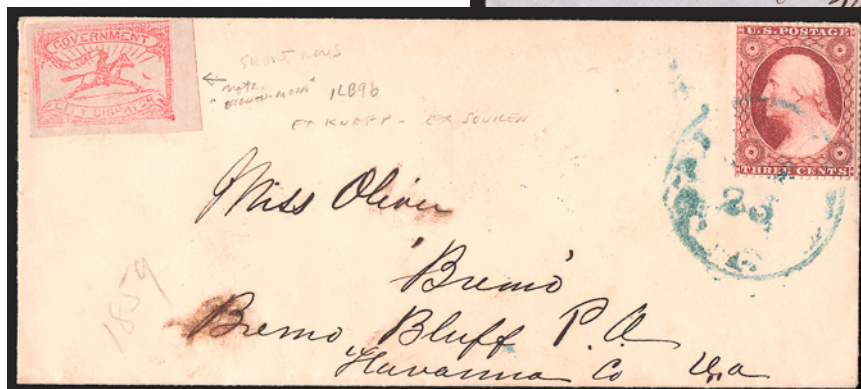 GOVERNMENT
CITY DISPATCH
1LB9b
EX KNAPP - EX SOUREN
U.S. POSTAGE
THREE CENTS
23
Miss Oliver
"Bremo"
Bremo Bluff P.O
Fluvanna Co Va
1859